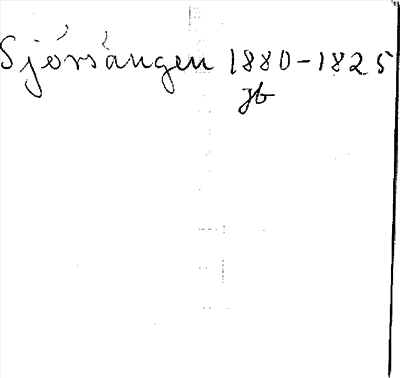 Sjörsängen 1880-1825